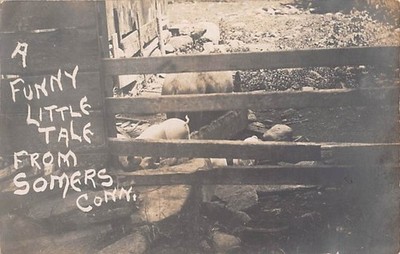 A
FUNNY
LITTLE
TALE
FROM
SOMERS
CONN.